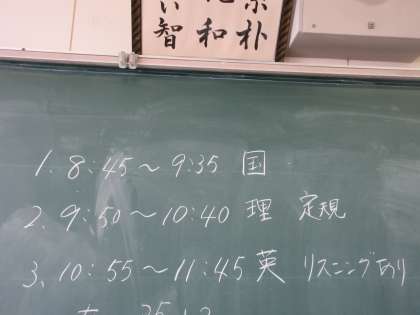 智 和 朴
1. 8:45～9:35 国
2. 9:50～10:40 理 定規
3. 10:55～11:45 英 リスニングあり